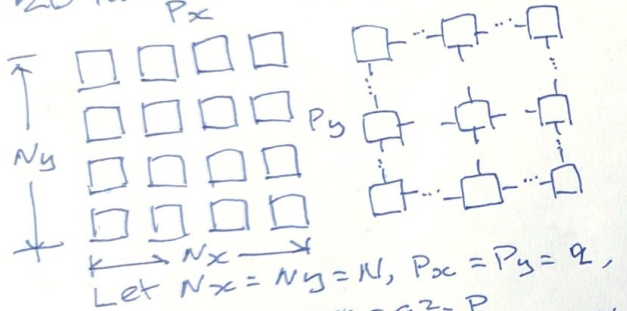 Px
Py
Ny
Nx
Let Nx = Ny = N, Px = Py = q,